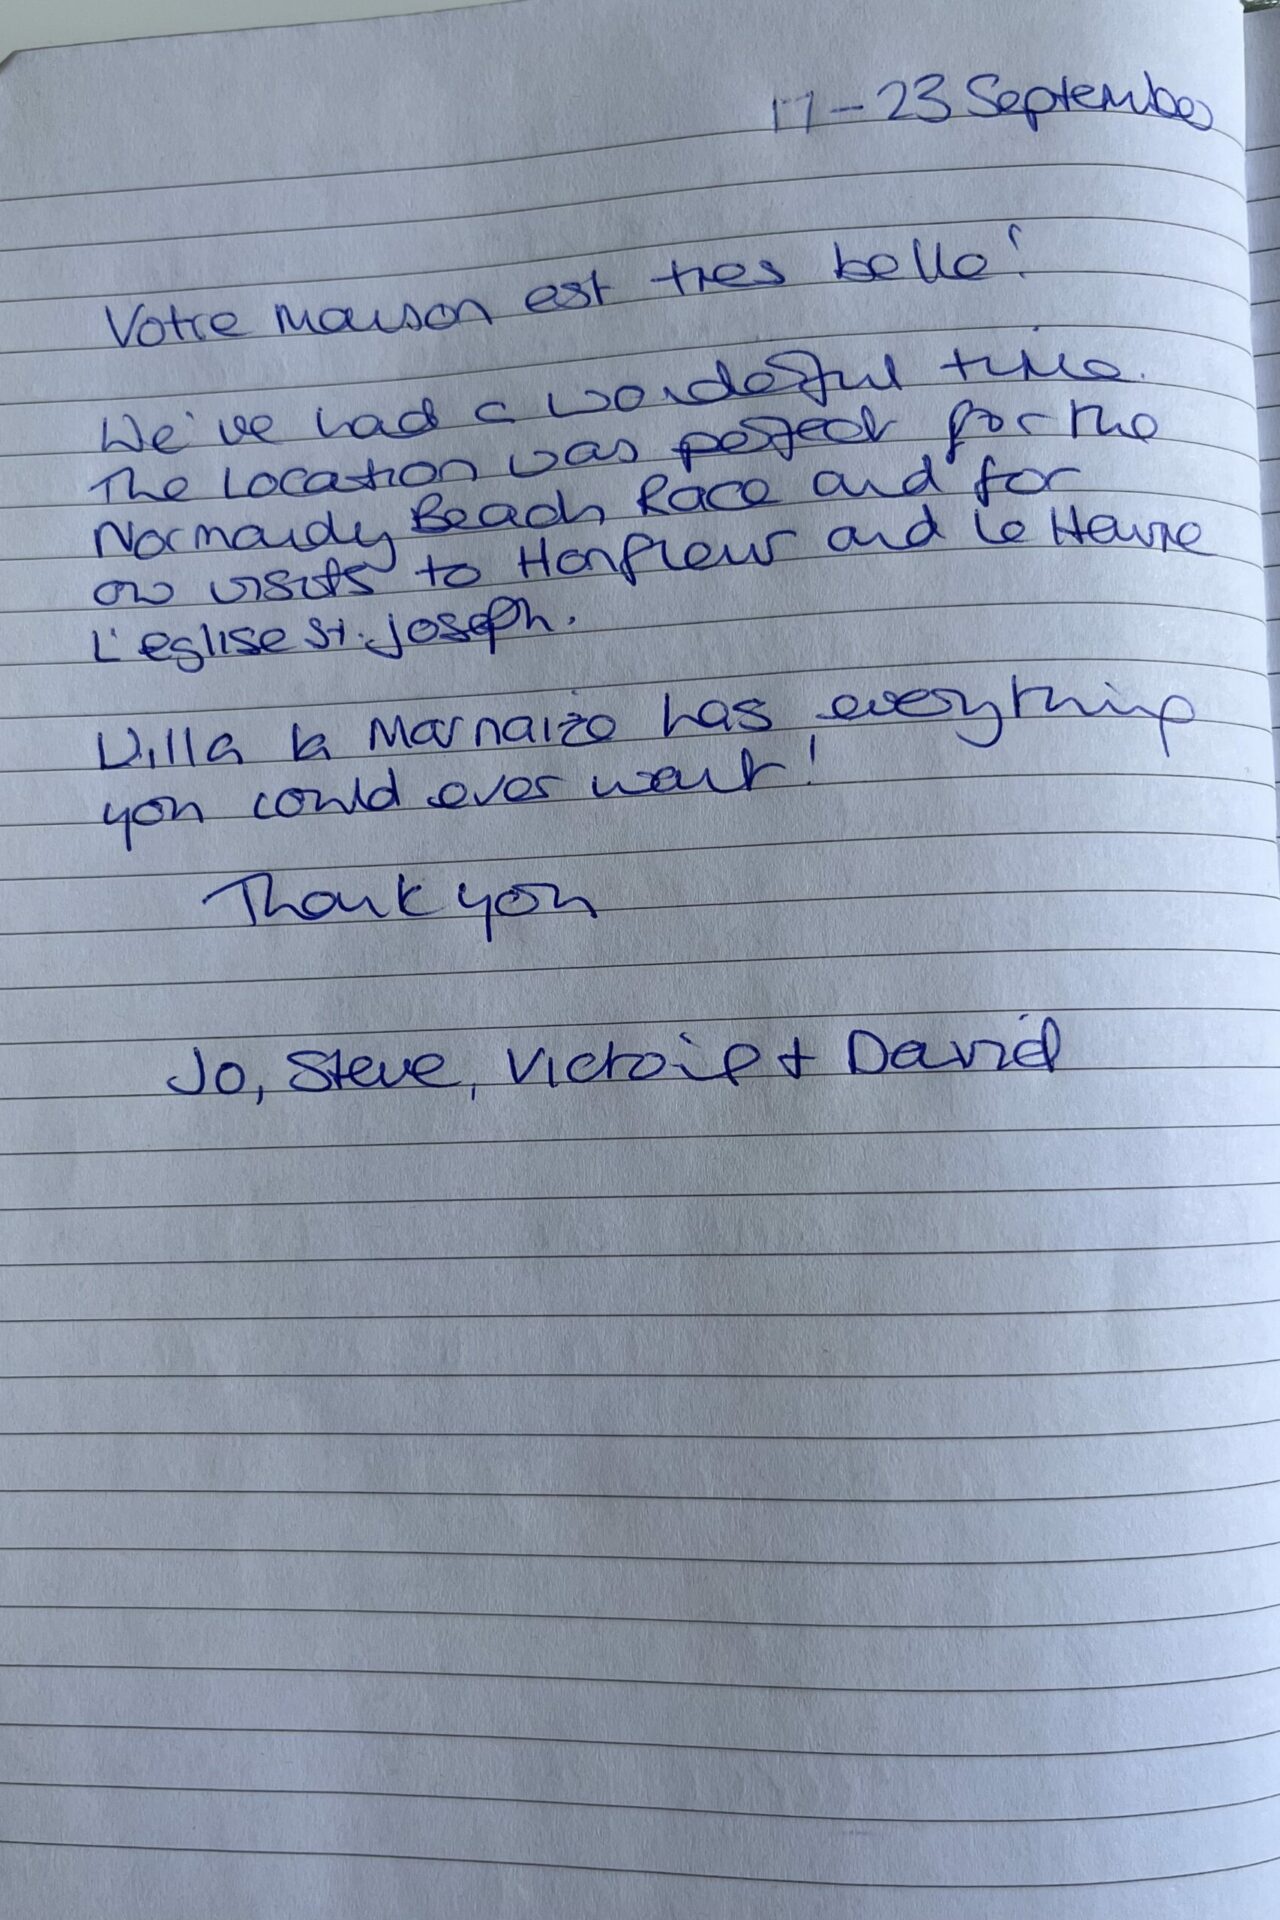 17-23 September
Votre maison est tres belle!
We've had a wonderful time.
The location was perfect for the
Normandy Beach Race and for
our visits to Honfleur and Le Havre
L'eglise St. Joseph.
Villa la Marnaize has everything
you could ever want!
Thank you
Jo, Steve, Victoria + David